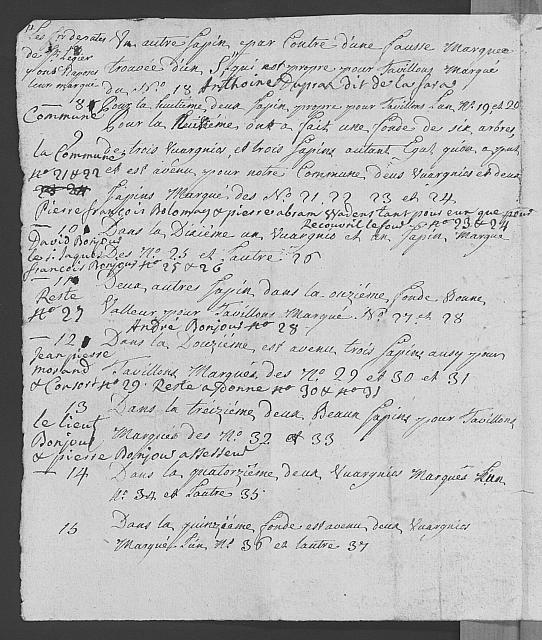 Les Cordonates Un autre Sapin, epar Contre d'une fausse Marque
de St Legier trouvée d'un S, qui est propre pour Tavillons Marqué
y ont Daposé
leur marque du No 18 Anthoine Duprat dit de la Sara
18 Pour la huitiéme deux Sapin, propre pour Tavillons L'un No. 19 et 20
Commune Pour la Neufiéme on a fait une fonde de six arbres,
9 de trois Vuargnies, et trois Sapins autant Egal quon a put
la Commune
No 21 & 22 et est avenu, pour notre Commune, deux Vuargnies et deux
Sapins Marqué des No 21, 22 23 et 24
Pierre françois Bolomay & pierre abram
Recouvri le four No 23 & 24
10 Dans la Dixiéme un Vuargnio et un Sapin Marqué
David Bonjour
les: Jaques Des No 25 et Lautre 26
francois Bonjour No 25 & 26
11 Deux autres Sapin dans la onziéme fonde Bonne
Reste
No 27 Valleur pour Tavillons Marqué No 27 et 28
André Bonjour No 28
12 Dans la Douziéme, est avenu trois Sapins ausy pour
Jean pierre
morand Tavillons Marqués des No 29 et 30 et 31
& Consort No 29. Reste a Donne No 30 & No 31
13 Dans la treiziéme deux Beaux Sapins pour Tavillons
le lieut
Bonjour Marqués des No 32 et 33
& pierre Bonjour assesseur
14 Dans la quatorziéme deux Vuargnies Marqués L'un
No 34 et Lautre 35
15 Dans la quinziéme fonde est avenu deux Vuargnies
Marqué L'un No 36 et lautre 37